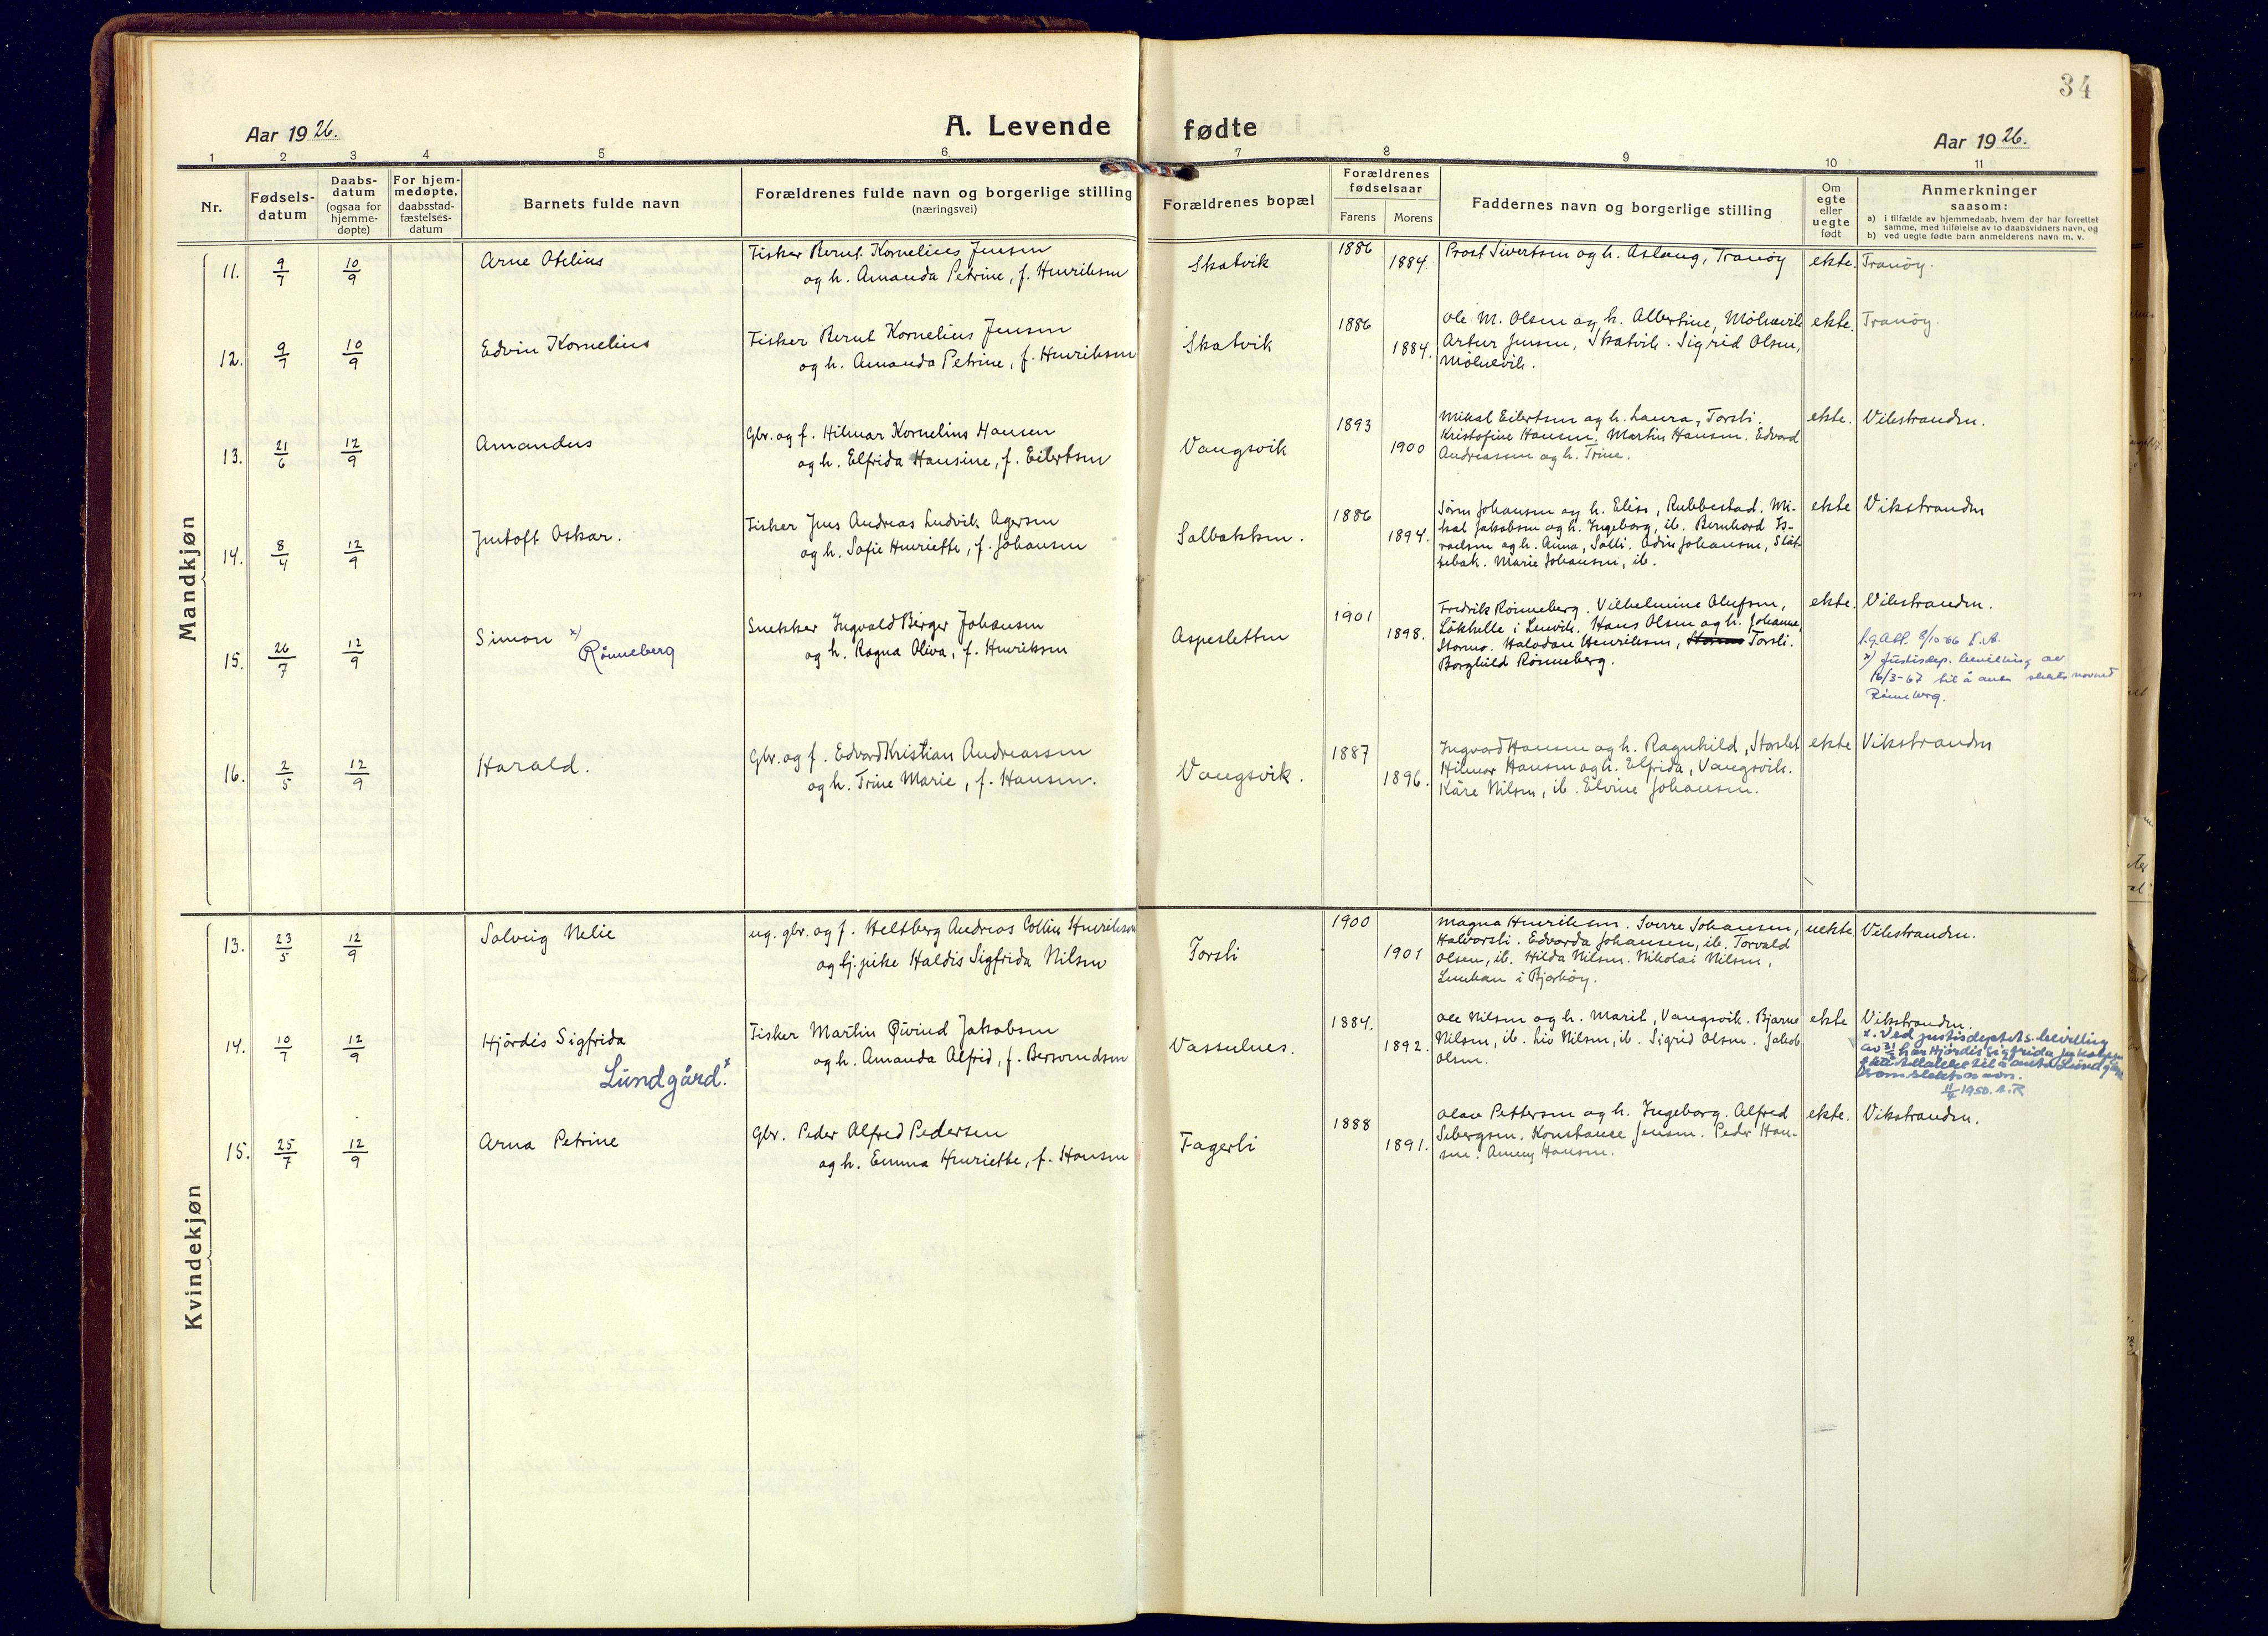 34
Aar 1926.
A. Levende fødte
Aar 1926.
1 2 3 4 5 6 7 8 9 10 11
Nr.
Fødsels-
datum
Daabs-
datum
(ogsaa for
hjemme-
døpte)
For hjem-
medøpte,
daabsstad-
fæstelses-
datum
Barnets fulde navn
Forældrenes fulde navn og borgerlige stilling
(næringsvei)
Forældrenes bopæl
Forældrenes
fødselsaar
Farens Morens
Faddernes navn og borgerlige stilling
Om
egte
eller
uegte
født
Anmerkninger
saasom:
a) i tilfælde av hjemmedaab, hvem der har forrettet
samme, med tilføielse av to daabsvidners navn, og
b) ved uegte fødte barn anmelderens navn m. v.
Mandkjøn
11. 9/7 10/9 Arne Otelius
Fisker Bernt Kornelius Jensen
og h. Amanda Petrine, f. Henriksen
Skatvik
1886
1884.
Prost Sivertsen og h. Aslaug, Tranöy
ekte. Tranöy.
12. 9/7 10/9 Edvin Kornelius
Fisker Bernt Kornelius Jensen
og h. Amanda Petrine, f. Henriksen
Skatvik
1886
1884.
Ole M. Olsen og h. Albertine, Mölnevik
Artur Jensen, Skatvik. Sigrid Olsen,
Mölnevik.
ekte. Tranöy.
13. 21/6 12/9 Amandus
Gbr. og f. Hilmar Kornelius Hansen
og h. Elfrida Hansine, f. Eilertsen
Vangsvik
1893
1900
Mikal Eilertsen og h. Laura, Torsli.
Kristofine Hansen. Martin Hansen. Edvard
Andreassen og h. Trine.
ekte. Vikstranden.
14. 8/4 12/9 Jentoft Oskar.
Fisker Jens Andreas Ludvik Agersen
og h. Sofie Henriette, f. Johansen
Solbakken.
1886
1894.
Sören Johansen og h. Elise, Rubbestad. Mi-
kal Jakobsen og h. Ingeborg, ib. Bernhard Is-
raelsen og h. Anna, Solli. Odin Johansen, Slåt-
tebak. Marie Johansen, ib.
ekte Vikstranden
15. 26/7 12/9 Simon x)
Rönneberg
Snekker Ingvald Birger Johansen
og h. Ragna Oliva, f. Henriksen
Aspesletten
1901
1898.
Fredrik Rönneberg. Vilhelmine Olufsen,
Lökhelle i Lenvik. Hans Olsen og h. Johanne,
Stormo. Halvdan Henriksen, Torsli.
Borghild Rönneberg.
ekte. Vikstranden.
8/10-66
x) Justisdep. bevilling av
16/3-67 til å anta slektsnavnet
Rönneberg.
16. 2/5 12/9 Harald.
Gbr. og f. Edvard Kristian Andreassen
og h. Trine Marie, f. Hansen.
Vangsvik.
1887
1896.
Ingvard Hansen og h. Ragnhild, Storslet
Hilmar Hansen og h. Elfrida, Vangsvik.
Kåre Nilsen, ib. Elvine Johansen.
ekte Vikstranden
Kvindekjøn
13. 23/5 12/9 Solveig Nelie
ug. gbr. og f. Heltberg Andreas Collius Henriksen
og tj. pike Haldis Sigfrida Nilsen
Torsli
1900
1901
Magna Henriksen. Sverre Johansen,
Halvorsli. Edvarda Johansen, ib. Torvald
Olsen, ib. Hilda Nilsen. Nikolai Nilsen,
i Bjarköy.
uekte Vikstranden.
14. 10/7 12/9 Hjördis Sigfrida
Lundgård.x
Fisker Martin Øivind Jakobsen
og h. Amanda Alfrid, f. Berntsen
Vassulnes.
1884.
1892.
Ole Nilsen og h. Marit, Vangsvik. Bjarne
Nilsen, ib. Liv Nilsen, ib. Sigrid Olsen. Jakob
Olsen.
ekte Vikstranden.
x. Ved justisdeptets. bevilling
av har Hjördis Sigfrida Jakobsen
fått tillatelse til å anta Lundgård
som slektsnavn.
1950.
15. 25/7 12/9 Arna Petrine
Gbr. Peder Alfred Pedersen
og h. Emma Henriette, f. Hansen
Fagerli
1888
1891.
Olav Pettersen og h. Ingeborg. Alfred
Sebergsen. Konstance Jensen. Peder Han-
sen. Amny Hansen.
ekte. Vikstranden.